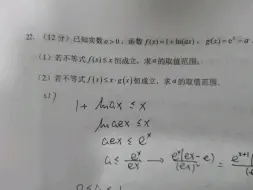 22. (12分)已知实数a>0，函数f(x)=1+ln(ax)，g(x)=eˣ-
(1)若不等式f(x)≤x恒成立，求a的取值范围；
(2)若不等式f(x)≤x·g(x)恒成立，求a的取值范围.
(1)
1 + lnax ≤ x
lnaex ≤ x
aex ≤ eˣ
a ≤ eˣ/ex → eˣ(ex-e)/(ex)²